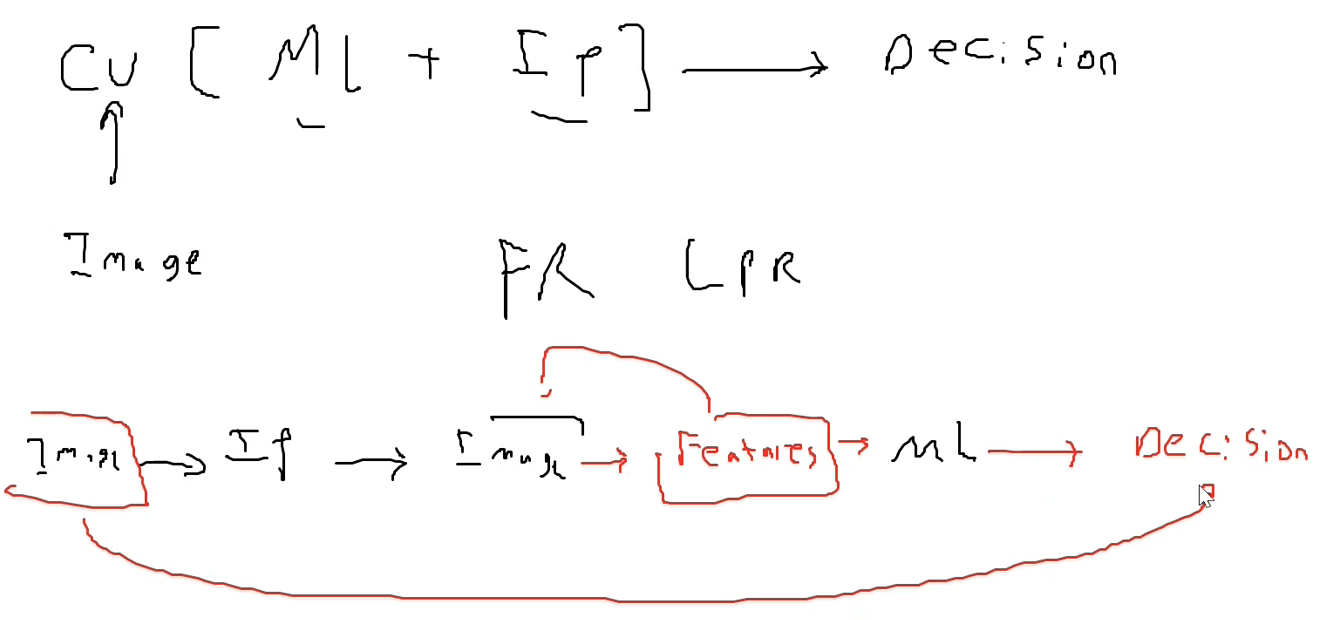 CV [ ML + IP ] → Decision
Image
FR LPR
Image → IP → Image → Features → ML → Decision